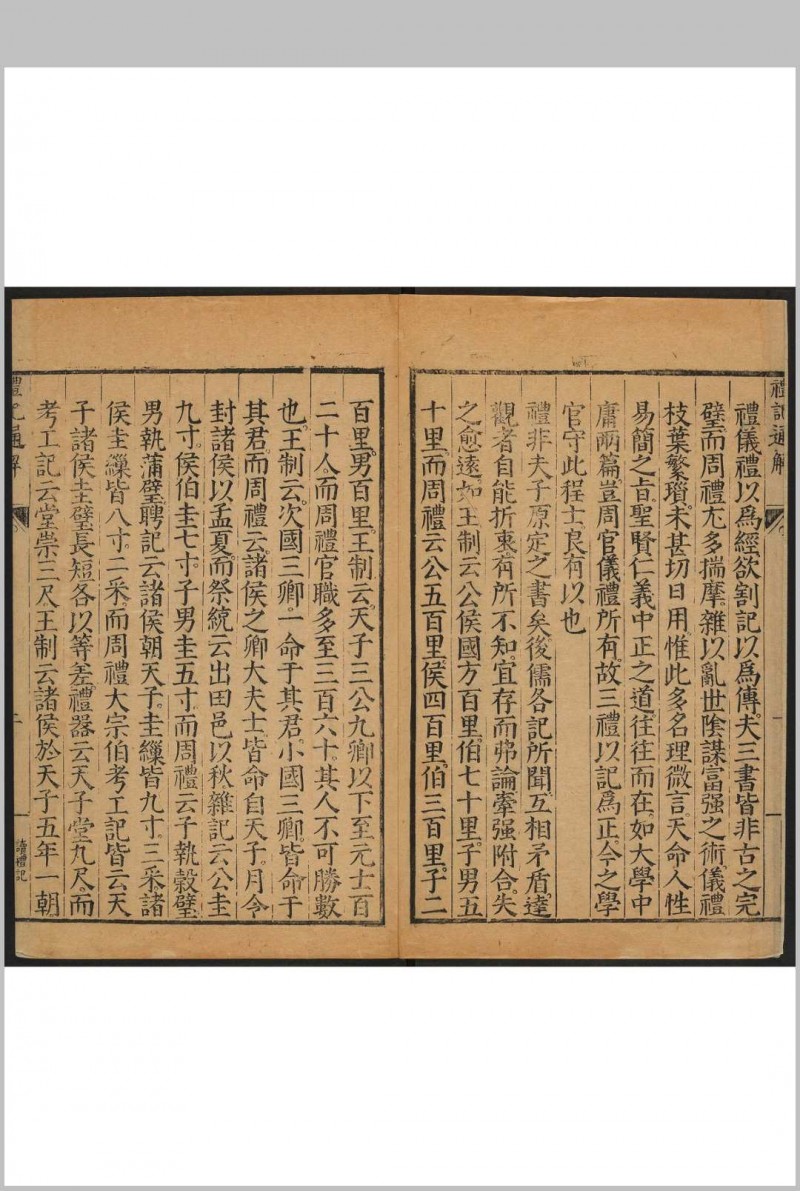 禮記通解
禮儀禮以爲經欲割記以爲傳夫三書皆非古之完
璧而周禮尤多揣摩雜以亂世陰謀富强之術儀禮
枝葉繁瑣未甚切日用惟此多名理微言天命人性
易簡之旨聖賢仁義中正之道往往而在如大學中
庸兩篇豈周官儀禮所有故三禮以記爲正今之學
官守此程士良有以也
禮非夫子原定之書矣後儒各記所聞互相矛盾達
觀者自能折衷有所不知宜存而弗論牽强附合失
之愈遠如王制云公侯國方百里伯七十里子男五
十里而周禮云公五百里侯四百里伯三百里子二
百里男百里王制云天子三公九卿以下至元士百
二十人而周禮官職多至三百六十其人不可勝數
也王制云次國三卿一命于其君小國三卿皆命于
其君而周禮云諸侯之卿大夫士皆命自天子月令
封諸侯以孟夏而祭統云出田邑以秋雜記云公圭
九寸侯伯圭七寸子男圭五寸而周禮云子執穀璧
男執蒲璧聘記云諸侯朝天子圭繅皆九寸三采諸
侯圭繅皆八寸二采而周禮大宗伯考工記皆云天
子諸侯圭璧長短各以等差禮器云天子堂九尺而
考工記云堂崇三尺王制云諸侯於天子五年一朝
禮記通解
二
讀禮記